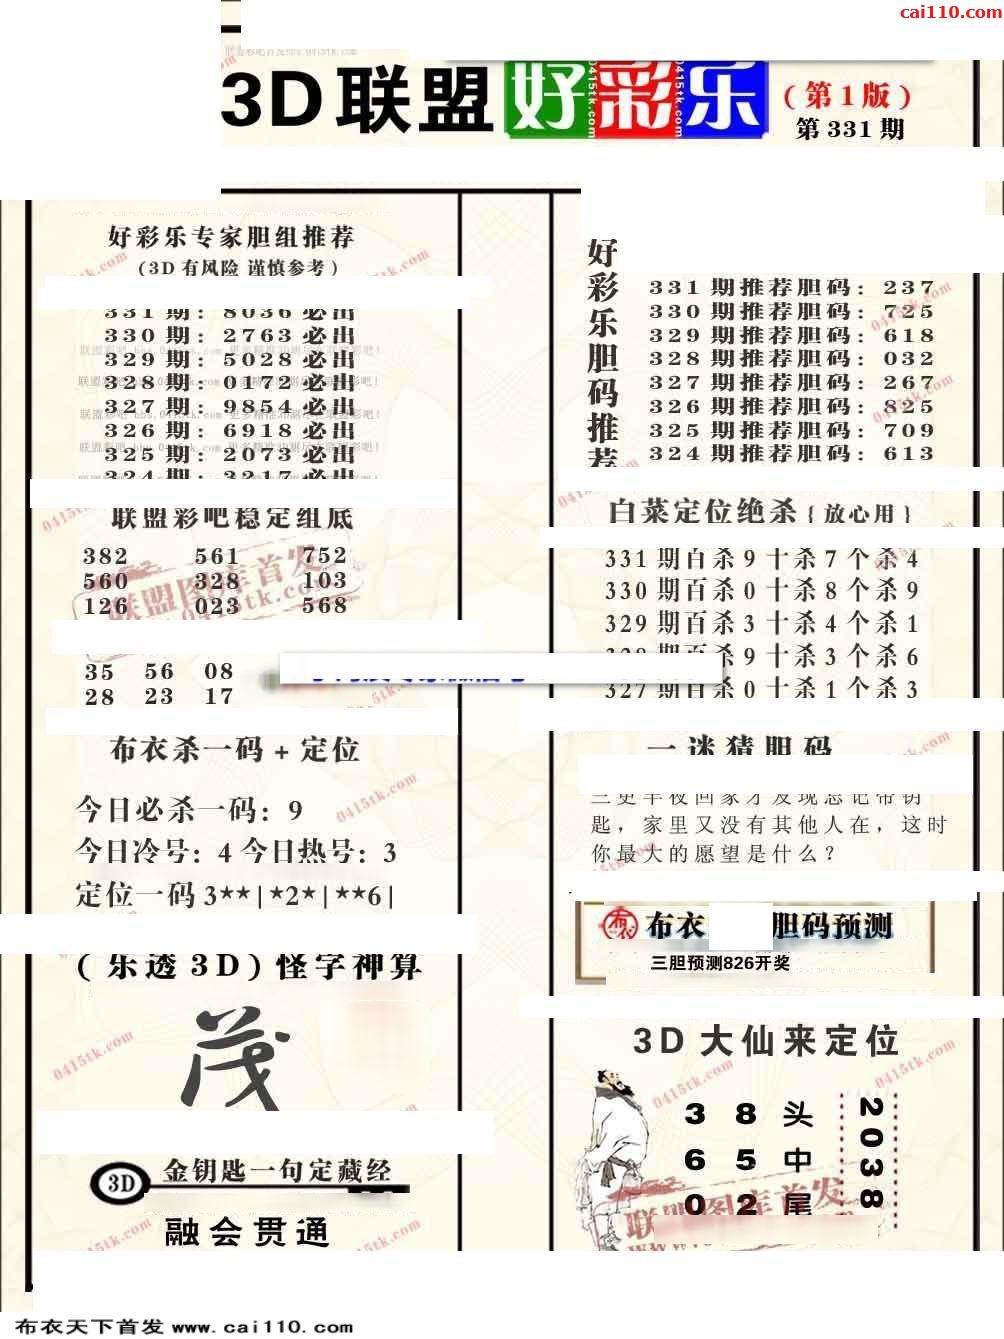 cai110.com
3D联盟 好彩乐 (第1版)
第331期
好彩乐专家胆组推荐
(3D有风险 谨慎参考)
331期: 8036必出
330期: 2763必出
329期: 5028必出
328期: 0172必出
327期: 9854必出
326期: 6918必出
325期: 2073必出
324期: 3217必出
联盟彩吧稳定组底
382 561 752
560 328 103
126 023 568
35 56 08
28 23 17
布衣杀一码+定位
今日必杀一码: 9
今日冷号: 4 今日热号: 3
定位一码 3**|*2*|**6|
(乐透3D)怪字神算
茂
3D 金钥匙一句定藏经
融会贯通
好彩乐胆码推荐
331期推荐胆码: 237
330期推荐胆码: 725
329期推荐胆码: 618
328期推荐胆码: 032
327期推荐胆码: 267
326期推荐胆码: 825
325期推荐胆码: 709
324期推荐胆码: 613
白菜定位绝杀{放心用}
331期百杀9十杀7个杀4
330期百杀0十杀8个杀9
329期百杀3十杀4个杀1
328期百杀9十杀3个杀6
327期百杀0十杀1个杀3
一迷猜胆码
三更半夜回家才发现忘记带钥
匙，家里又没有其他人在，这时
你最大的愿望是什么？
布衣 胆码预测
三胆预测826开奖
3D大仙来定位
3 8 头
6 5 中
0 2 尾
2038
联盟图库首发
0415tk.com
布衣天下首发 www.cai110.com